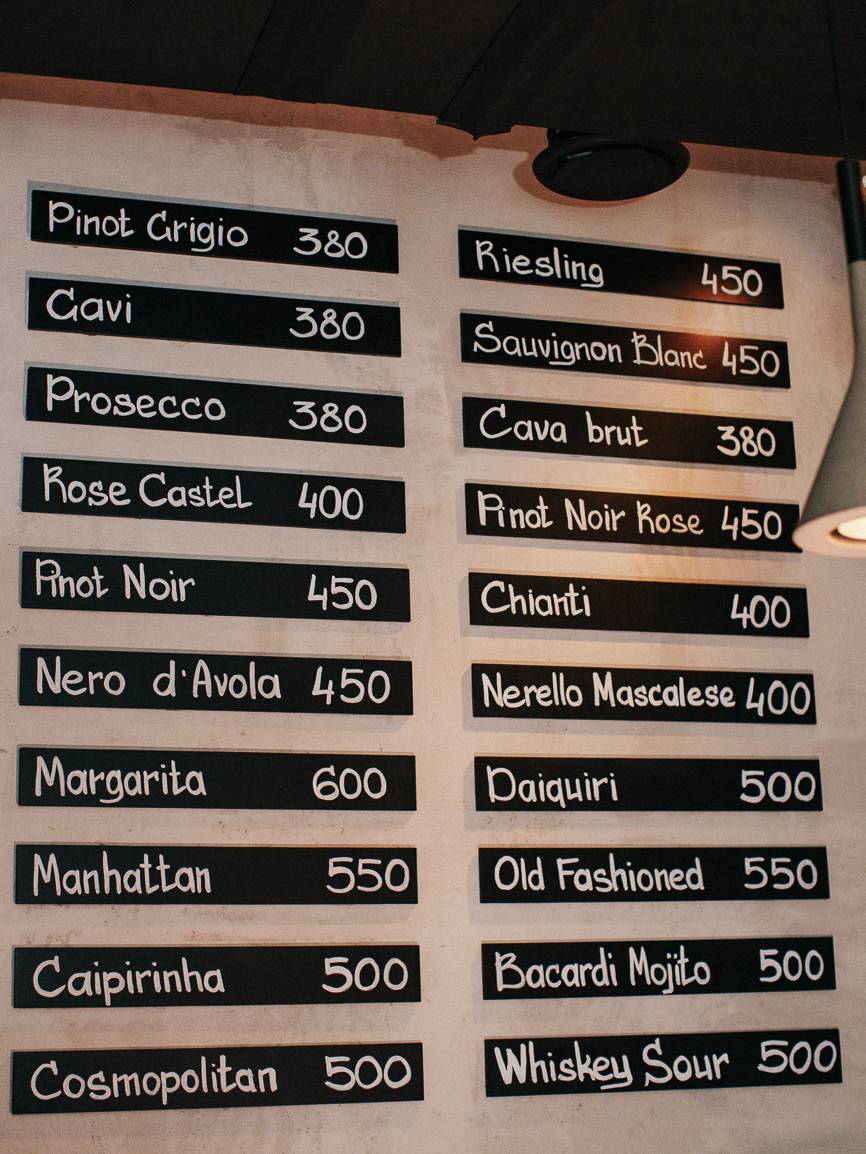 Pinot Grigio 380
Gavi 380
Prosecco 380
Rose Castel 400
Pinot Noir 450
Nero d'Avola 450
Margarita 600
Manhattan 550
Caipirinha 500
Cosmopolitan 500
Riesling 450
Sauvignon Blanc 450
Cava brut 380
Pinot Noir Rose 450
Chianti 400
Nerello Mascalese 400
Daiquiri 500
Old Fashioned 550
Bacardi Mojito 500
Whiskey Sour 500